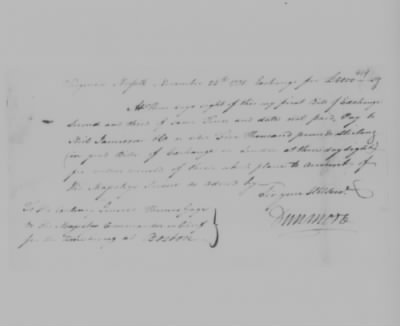 Virginia Norfolk November 24th 1775 Exchange for £5000 Stg
At three days sight of this my first Bill of Exchange
Second and third of same Tenor and date not paid, Pay to
Neil Jamieson or order Five Thousand pounds Sterling
in good Bills of Exchange on London at thirty days sight
for value received of them which place to account of
His Majestys Service as advised by
Dunmore
General Thomas Gage
His Majestys Commander in Chief
for the at Boston